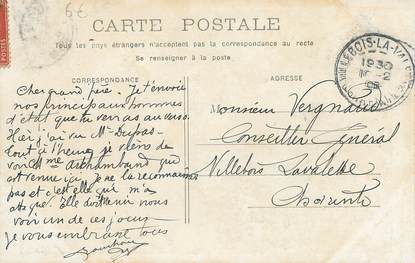 6€
CARTE POSTALE
Tous les pays étrangers n'acceptent pas la correspondance au recto
Se renseigner à la poste
CORRESPONDANCE
Cher grand père. Je t'envoie
nos principaux hommes
d'état que tu verras au verso.
Hier j'ai vu Mr Dupas.
Tout à l'heure je viens de
voir Mme Archambaud qui
est venue ici. Je ne la reconnaissais
pas et c'est elle qui m'a
. Elle doit venir nous
voir un de ces jours
Je vous embrasse tous
ADRESSE
Monsieur Vergnaud
Conseiller Général
Villebois Lavalette
Charente
VILLEBOIS-LA-VAL
1930